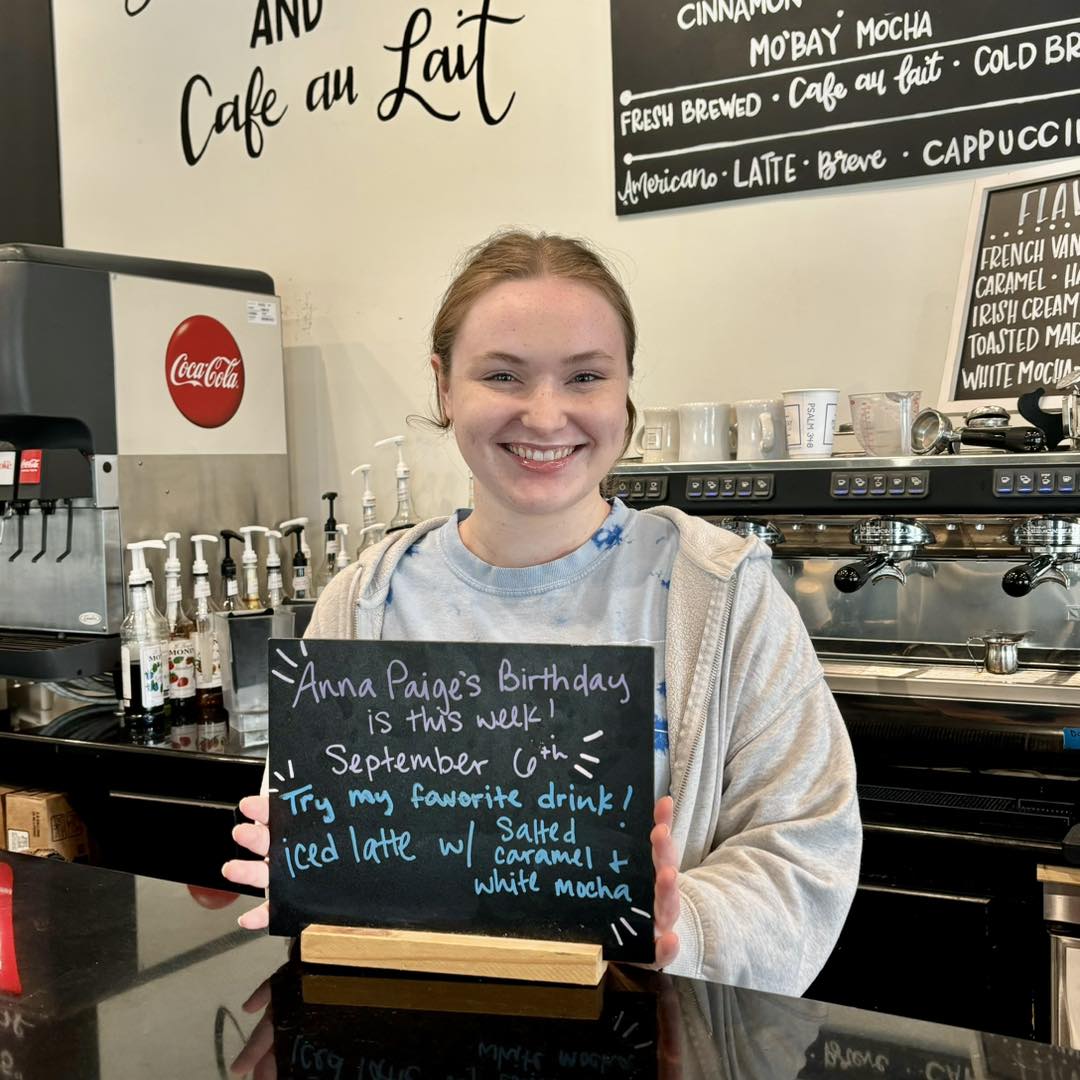 AND
Cafe au Lait
CINNAMON
MO'BAY MOCHA
FRESH BREWED · Cafe au lait · COLD BR
Americano · LATTE · Breve · CAPPUCCI
FLA
FRENCH VAN
CARAMEL · HA
IRISH CREAM
TOASTED MAR
WHITE MOCHA
Coca-Cola
PSALM 34:8
MONI
Anna Paige's Birthday
is this week!
September 6th
Try my favorite drink!
iced latte w/ Salted
caramel +
white mocha